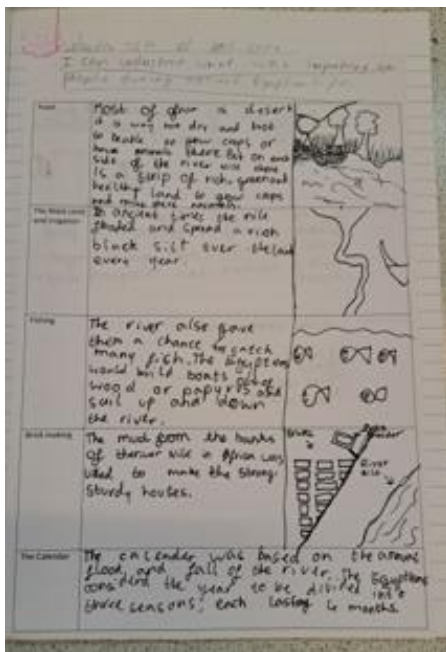 I can understand what was important to
people during ancient Egyptian life
Food
Most of afour is desert
it is way too dry and hot
to
have animals there but on each
side of the river nile there
is a strip of rich, green and
healthy land to grow caps
and more animals.
The Black Land
and irrigation
In ancient times the nile
flooded and spread a rich
black silt over the land
every year
Fishing
The river also gave
them a chance to catch
many fish. The Egyptians
would build boats out of
wood or papyrus and
sail up and down
the river.
Brick making
The mud from the banks
of the river nile in African was
used to make the strong
sturdy houses.
River
nile
The Calendar
The calender was based on the annual
flood and fall of the river. The Egyptians
considerd the year to be divided into
three seasons; each lasting 4 months.